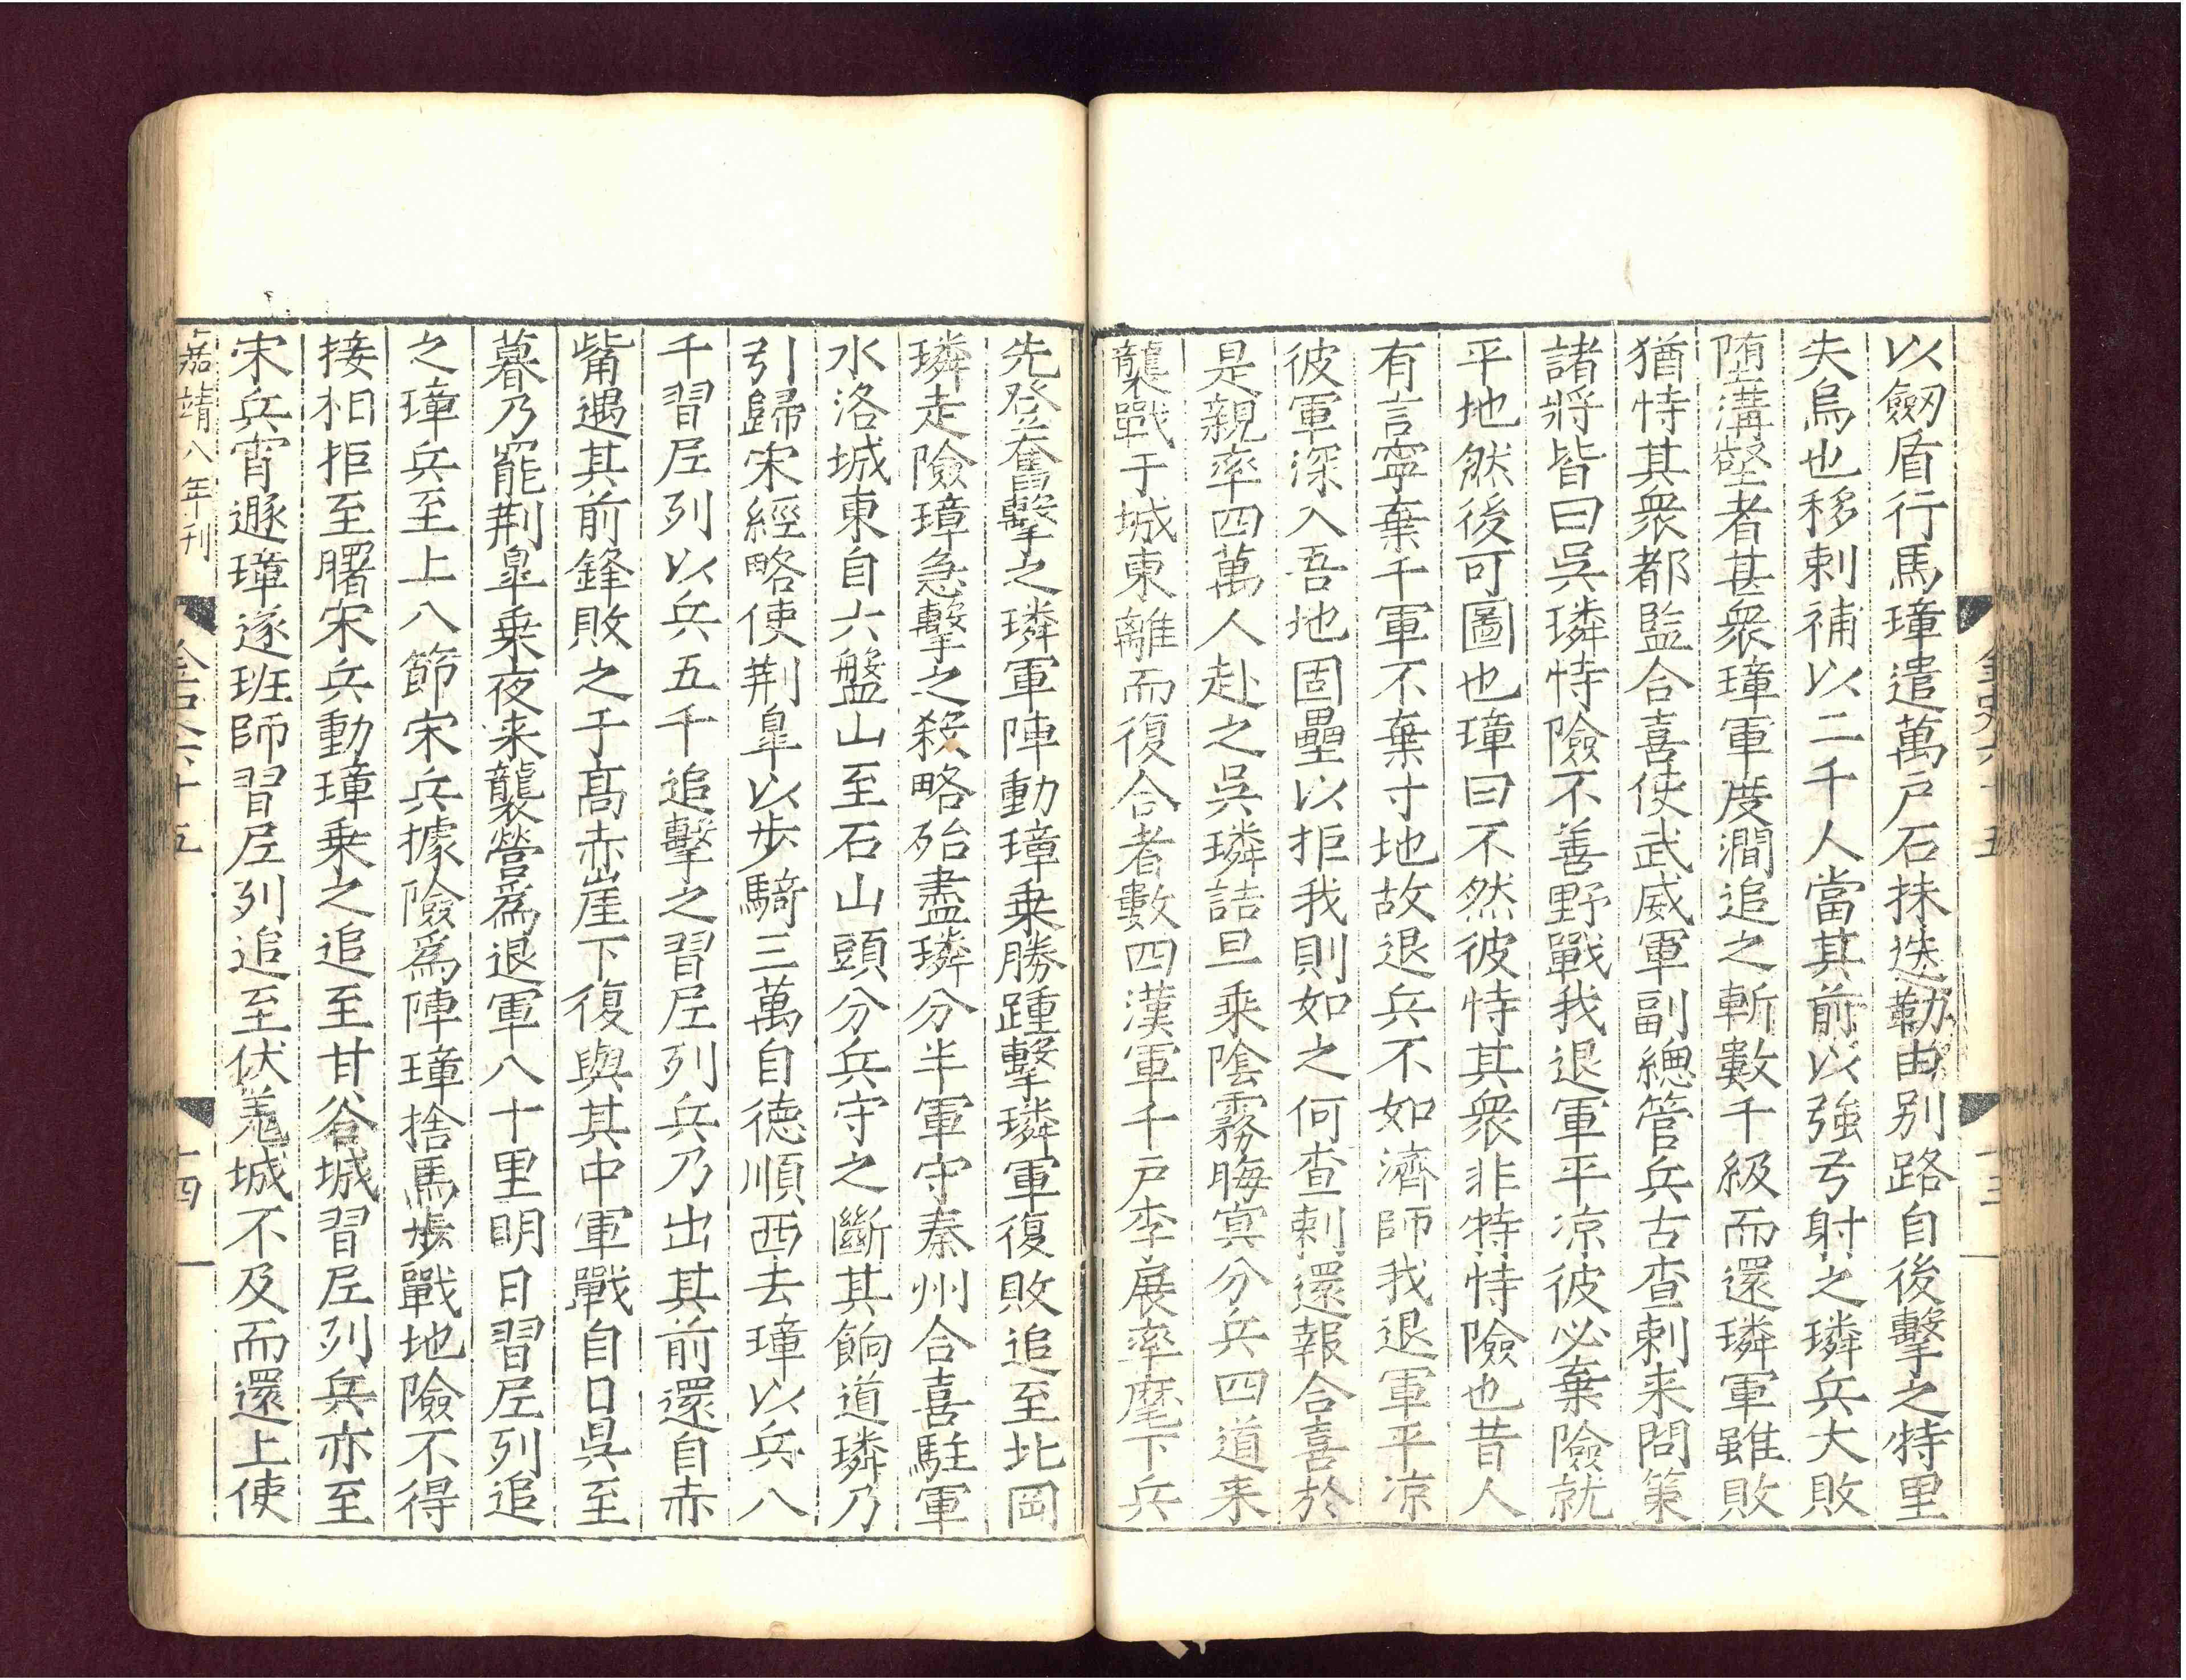 以劒盾行馬璋遣萬戶石抹迭勒由别路自後擊之特里
失烏也移剌補以二千人當其前以強弓射之璘兵大敗
堕溝壑者甚衆璋軍度澗追之斬數千級而還璘軍雖敗
猶恃其衆都監合喜使武威軍副總管兵古查剌来問策
諸將皆曰吳璘恃險不善野戰我退軍平凉彼必棄險就
平地然後可圖也璋曰不然彼恃其衆非特恃險也昔人
有言寧棄千軍不棄寸地故退兵不如濟師我退軍平凉
彼軍深入吾地固壘以拒我則如之何查剌還報合喜於
是親率四萬人赴之吳璘詰旦乘陰霧晦㝠分兵四道来
襲戰于城東離而復合者數四漢軍千戶李展率麾下兵
先登奮擊之璘軍陣動璋乗勝踵擊璘軍復敗追至北岡
璘走險璋急擊之殺略殆盡璘分半軍守秦州合喜駐軍
水洛城東自六盤山至石山頭分兵守之斷其餉道璘乃
引歸宋經略使荆臯以歩騎三萬自德順西去璋以兵八
千習尼列以兵五千追擊之習尼列兵乃出其前還自赤
觜遇其前鋒敗之于高赤崖下復與其中軍戰自日昃至
暮乃罷荆臯乗夜来襲營爲退軍八十里明日習尼列追
之璋兵至上八節宋兵據險爲陣璋捨馬歩戰地險不得
接相拒至曙宋兵動璋乗之追至甘谷城習尼列兵亦至
宋兵宵遯璋遂班師習尼列追至伏羌城不及而還上使
嘉靖八年刊
金史六十五
十四